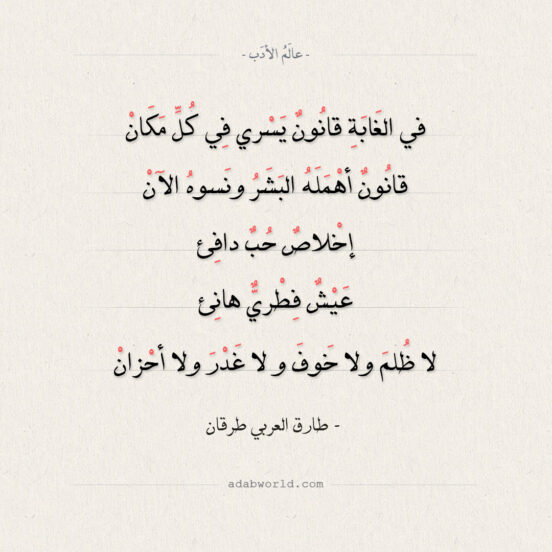 - عالَمُ الأدَب -
في الغَابَةِ قانُونٌ يَسْري فِي كُلِّ مَكَانْ
قانُونٌ أهْمَلَهُ البَشَرُ ونَسوهُ الآنْ
إخْلاصٌ حُبٌ دافِئ
عَيْشٌ فِطْريٌّ هانِئ
لا ظُلمَ ولا خَوفَ و لا غَدْرَ ولا أحْزانْ
- طارق العربي طرقان
adabworld.com